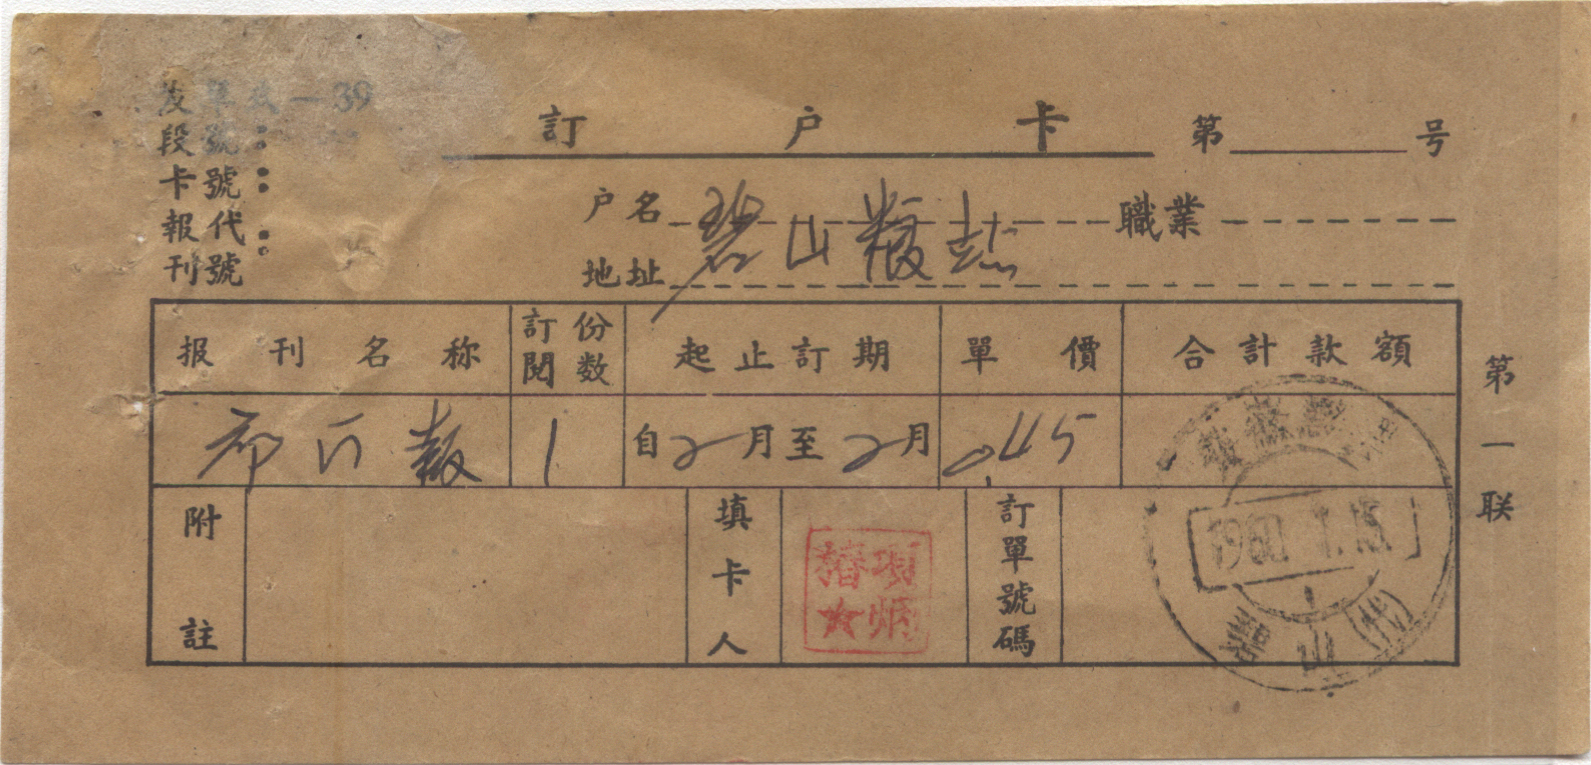 發單
段號：
卡號：
報代
刊號：
—39
訂戶卡
第 号
户名 碧山粮站 職業
地址
报刊名称 訂閱份数 起止訂期 單價 合計款額
报 1 自2月至2月 0.45
附註 填卡人 訂單號碼
第一联
椿 炳
★
1960.1.15
碧山(代)